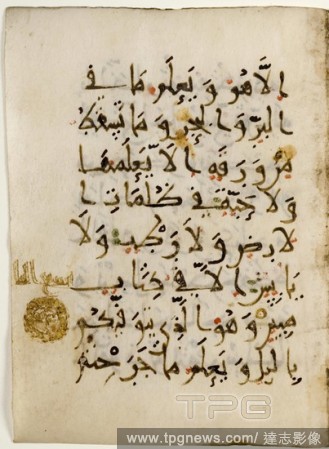 الا هو و يعلم ما في
البر و البحر و ما تسقط
من ورقة الا يعلمها
ولا حبة في ظلمات ا
لارض ولا رطب ولا
يابس الا في كتاب
مبين وهو الذي يتوفيكم
بالليل و يعلم ما جرحتم
TPG
www.tpgnews.com/ 達志影像